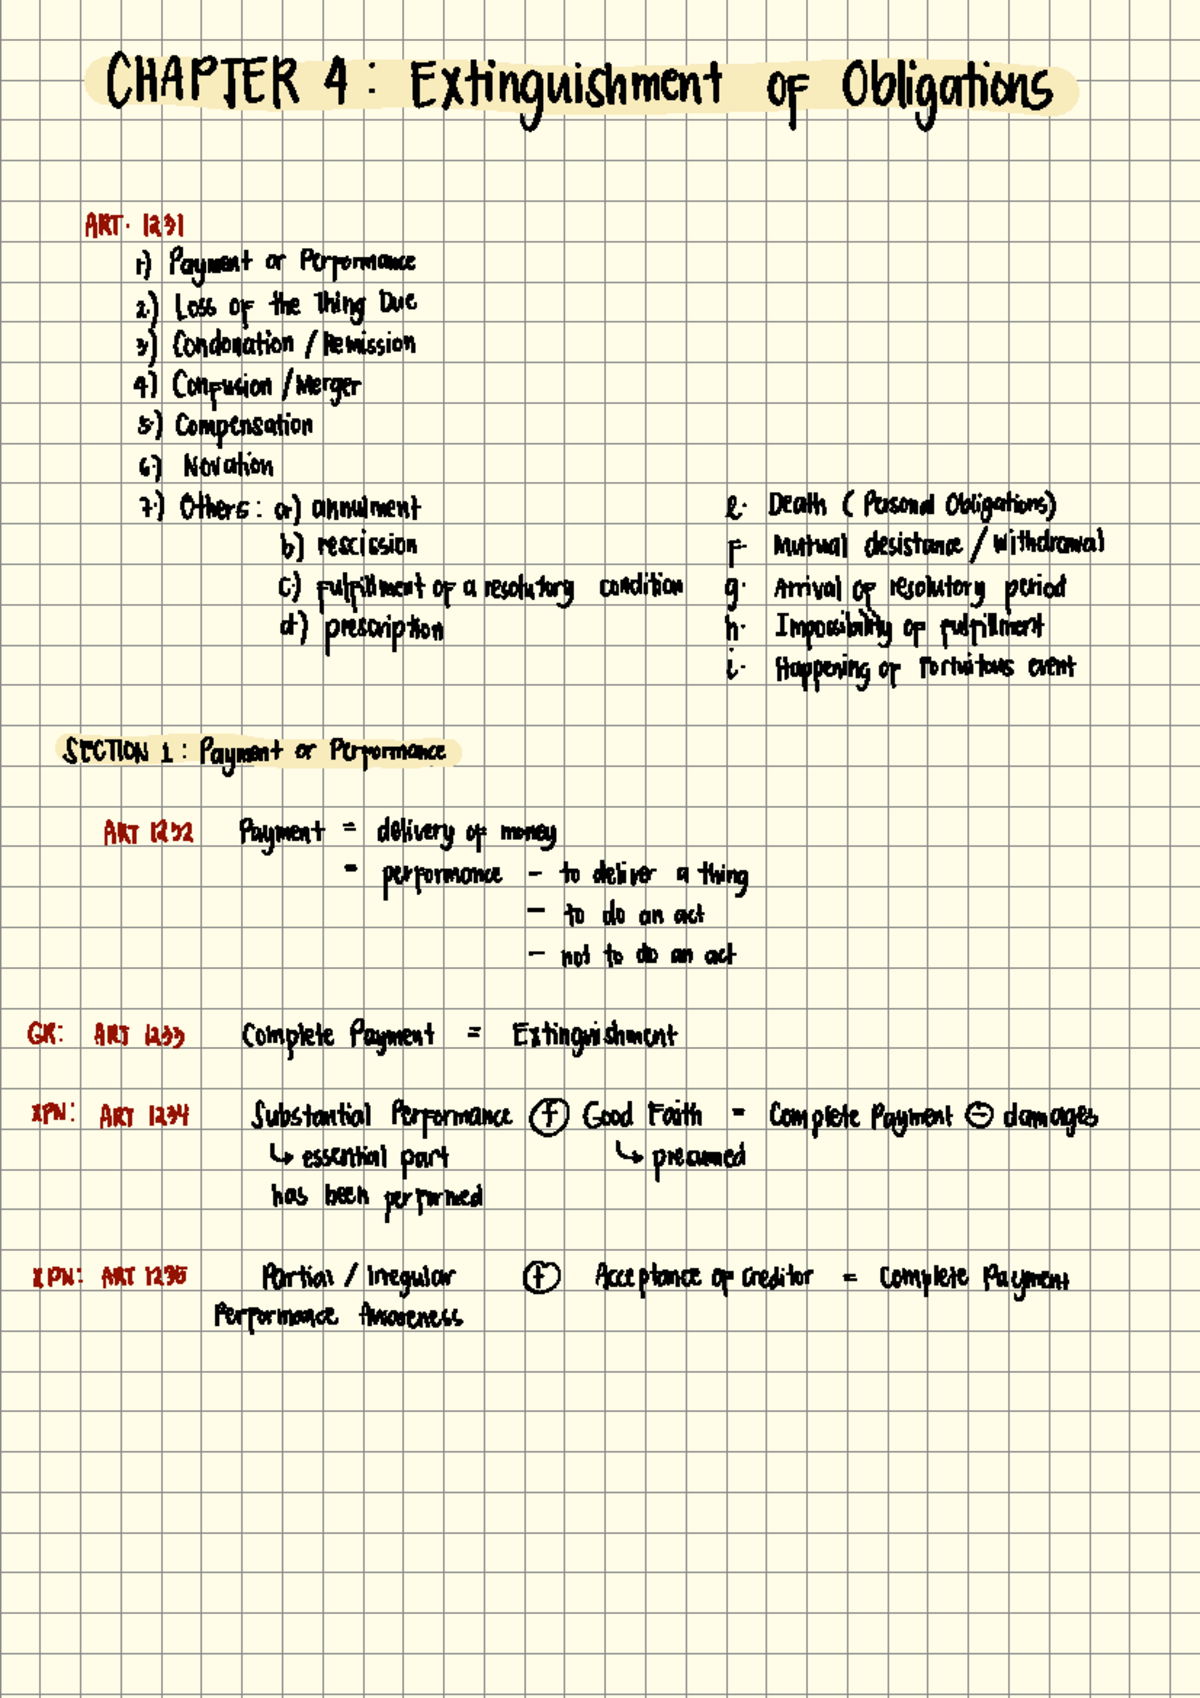 CHAPTER 4: Extinguishment of Obligations
ART. 1231
1) Payment or Performance
2) Loss of the Thing Due
3) Condonation / Remission
4) Confusion / Merger
5) Compensation
6) Novation
7) Others: a) annulment
b) rescission
c) fulfillment of a resolutory condition
d) prescription
e. Death (Personal Obligations)
f. Mutual desistance / Withdrawal
g. Arrival of resolutory period
h. Impossibility of fulfillment
i. Happening of Fortuitous event
SECTION 1: Payment or Performance
ART 1232 Payment = delivery of money
= performance - to deliver a thing
- to do an act
- not to do an act
GR: ART 1233 Complete Payment = Extinguishment
XPN: ART 1234 Substantial Performance + Good Faith = Complete Payment - damages
↳ essential part ↳ presumed
has been performed
XPN: ART 1235 Partial / Irregular + Acceptance of creditor = Complete Payment
Performance Awareness